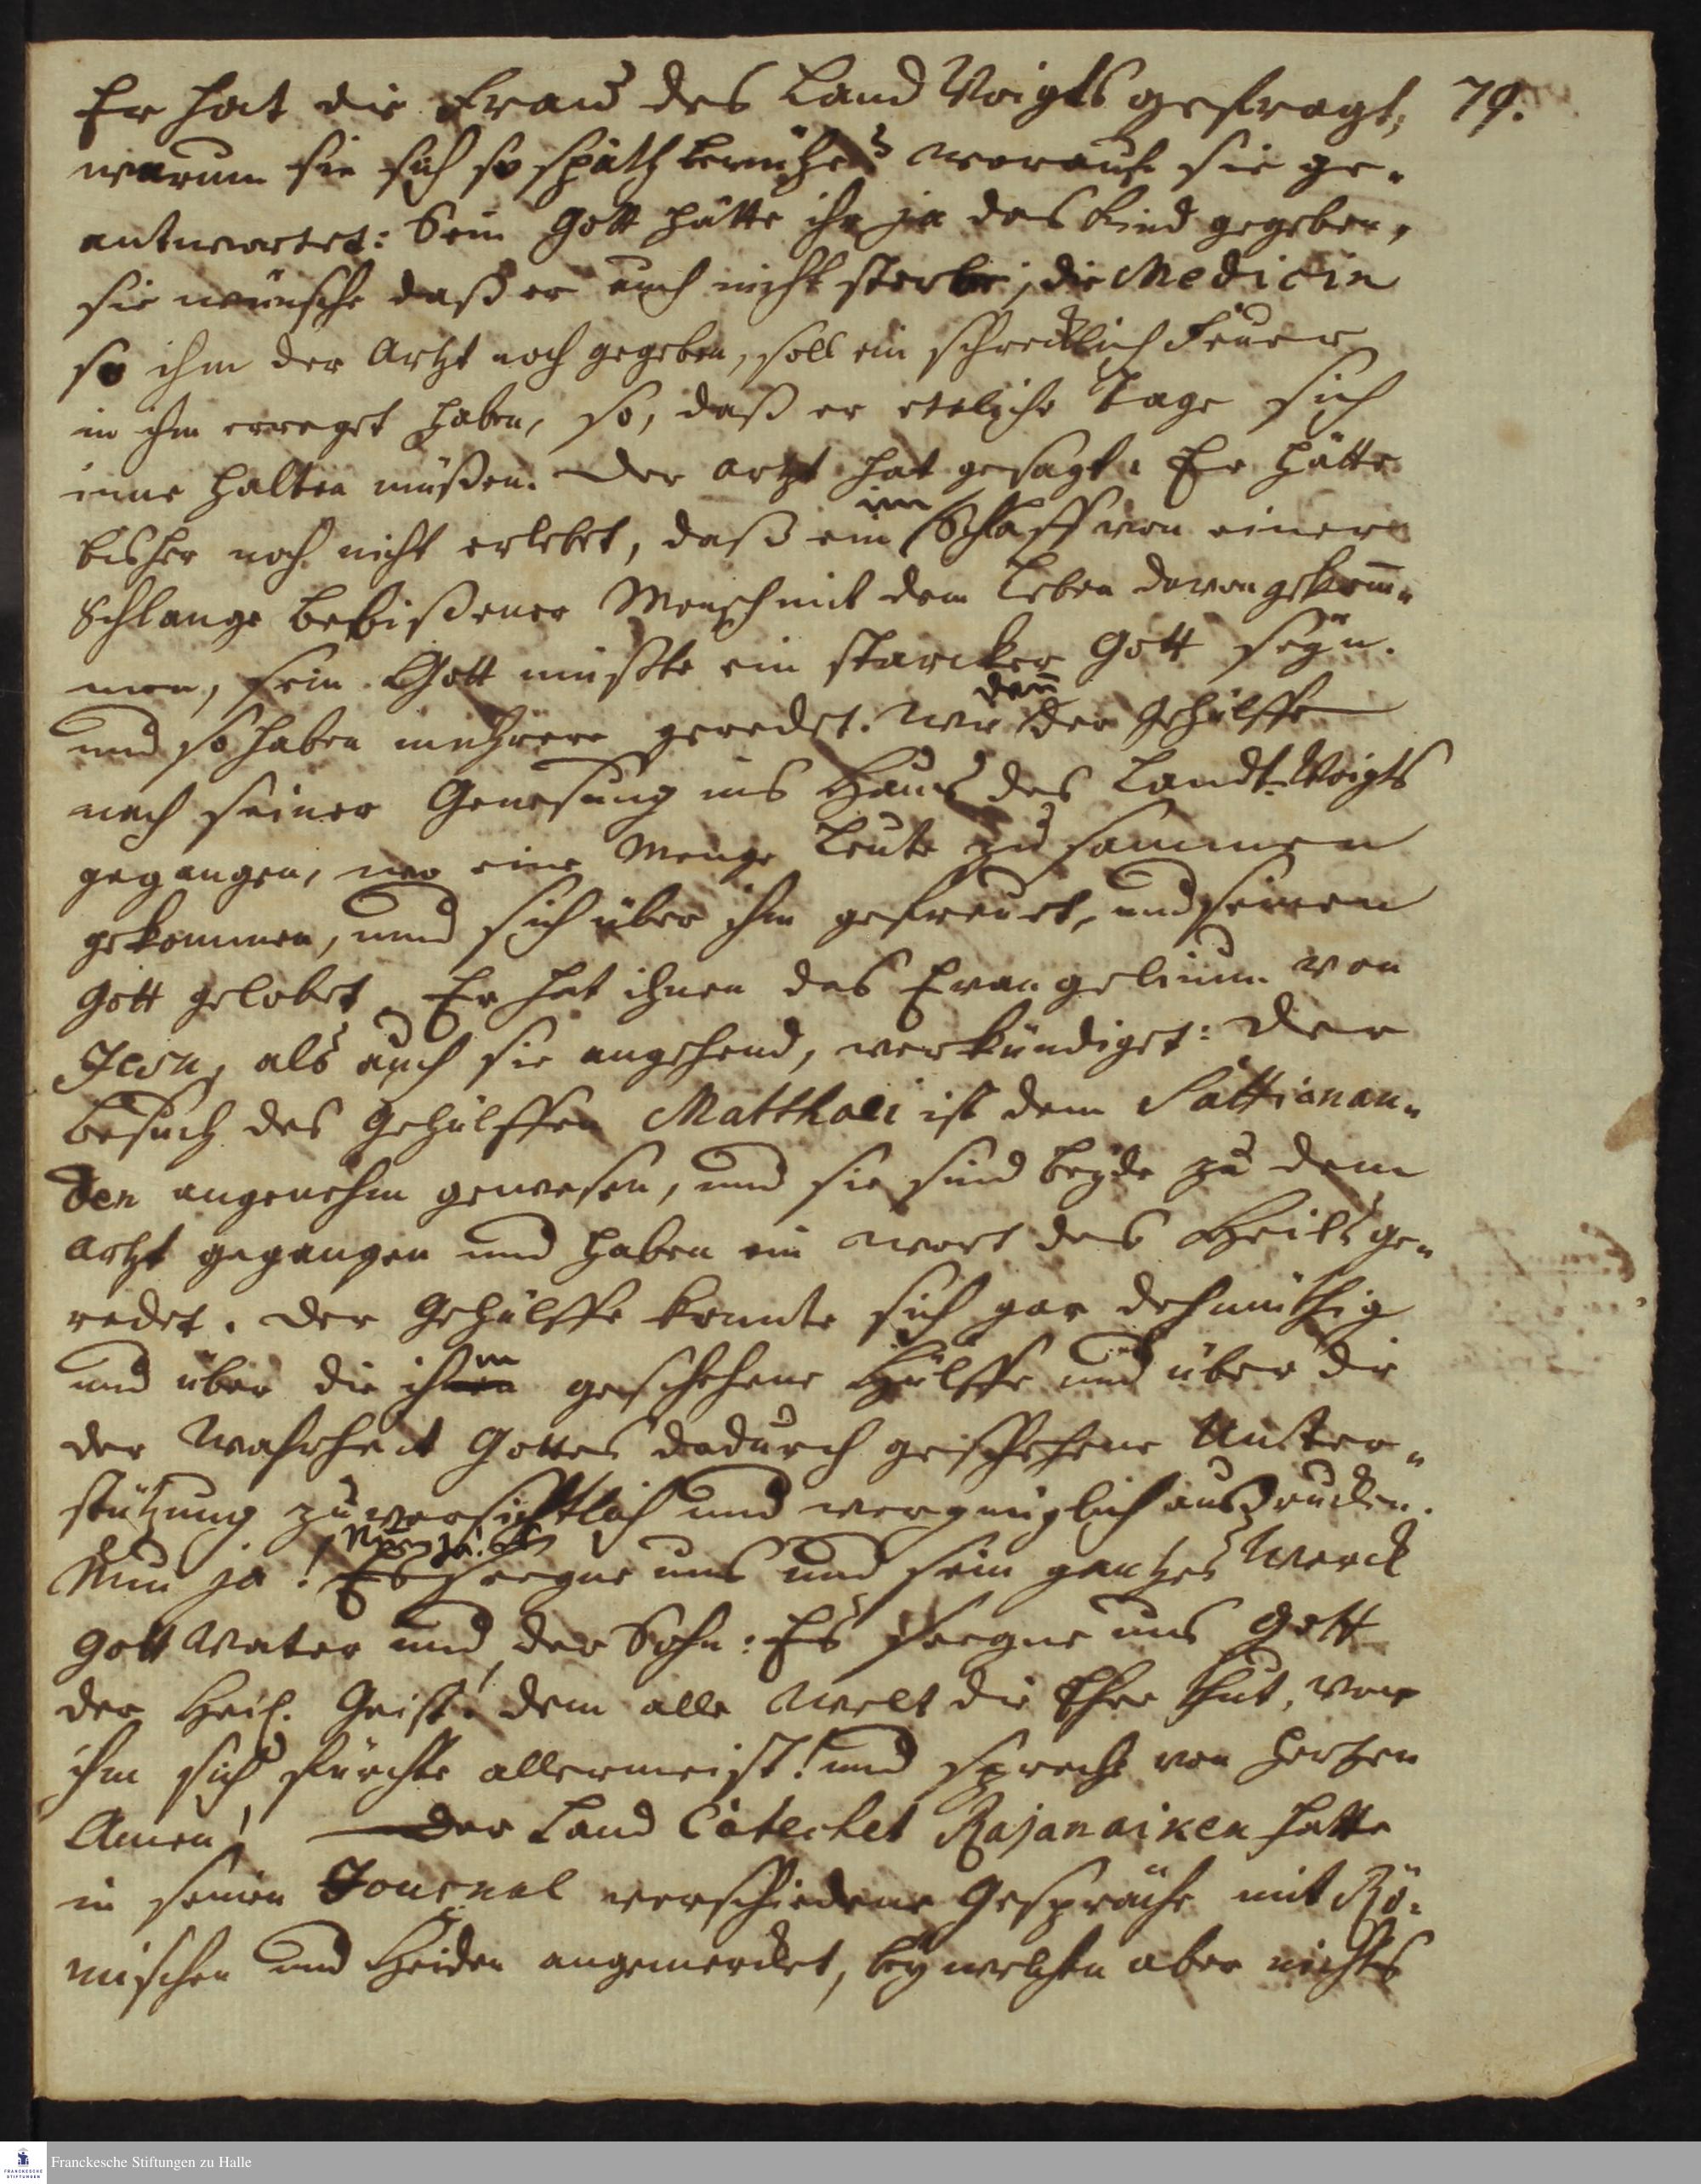 Er hat die Frau des Land Voigts gefragt, 79.
warum sie sich so späth bemühe? worauf sie ge-
antwortet: Sein Gott hätte ihr ja das Kind gegeben,
sie wünsche daß er auch nicht sterbe; die Medicin
so ihm der Artzt noch gegeben, soll ein schrecklich Feuer
in ihm erreget haben, so, daß er etliche Tage sich
inne halten müßen. Der Artzt hat gesagt: Er hätte
bisher noch nicht erlebet, daß ein im Schlaff von einer
Schlange gebißener Mensch mit dem Leben davon gekom̄-
men, sein Gott müßte ein starcker Gott seyn.
und so haben mehrere geredet. Wie den̄ der Gehülffe
nach seiner Genesung ins Hauß des Landt-Voigts
gegangen, wo eine Menge Leute zusammen
gekommen, und sich über ihn gefreuet, und seinen
Gott gelobet. Er hat ihnen das Evangelium von
Jesu, als auch sie angehend, verkündiget: Der
Besuch des Gehülffen Matthaei ist dem Sattianan-
den angenehm gewesen, und sie sind beyde zu dem
Artzt gegangen und haben ein Wort des Heils ge-
redet. Der Gehülffe konnte sich gar dehmüthig
und über die ihm geschehene Hülffe und über die
der Wahrheit Gottes dadurch geschehene Unter-
stützung zuversichtlich und vergnüglich ausdrucken.
Nun ja! Es seegne uns und sein gantzes Werck
Gott Vater und der Sohn: Es seegne uns Gott
der Heil. Geist! dem alle Welt die Ehre thut, vor
ihm sich fürchte allermeist! und spreche von Hertzen
Amen! — Der Land Catechet Rajanaiken hatte
in seinen Journal verschiedene Gespräche mit Rö-
mischen und Heiden angemercket, bey welchen aber nichts
Franckesche Stiftungen zu Halle
FRANCKESCHE
STIFTUNGEN